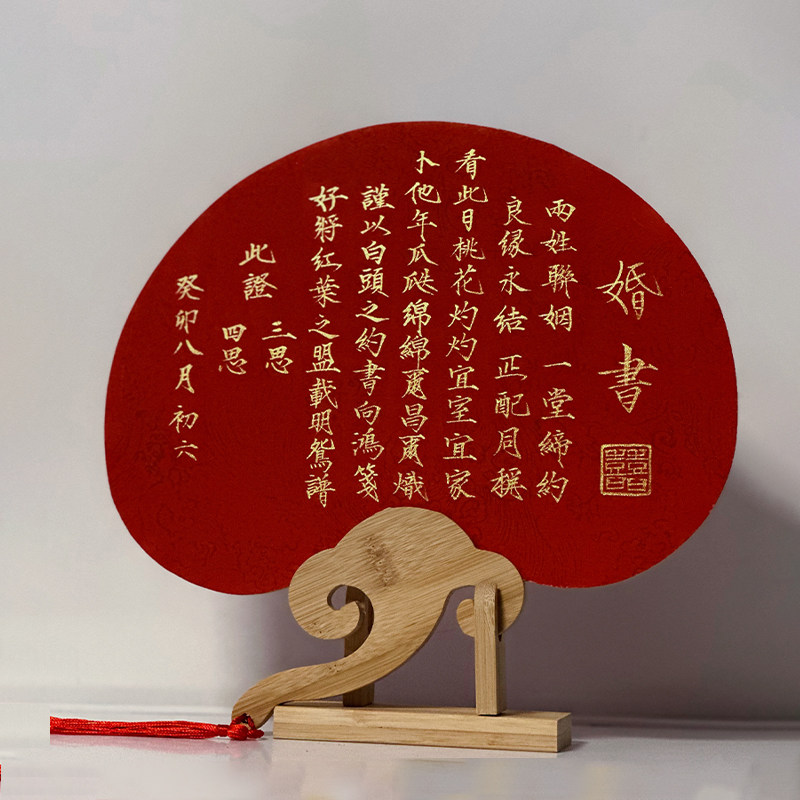 婚書
囍
兩姓聯姻 一堂締約
良緣永結 匹配同稱
看此日桃花灼灼宜室宜家
卜他年瓜瓞綿綿爾昌爾熾
謹以白頭之約書向鴻箋
好將紅葉之盟載明鴛譜
此證
三思
四思
癸卯八月初六